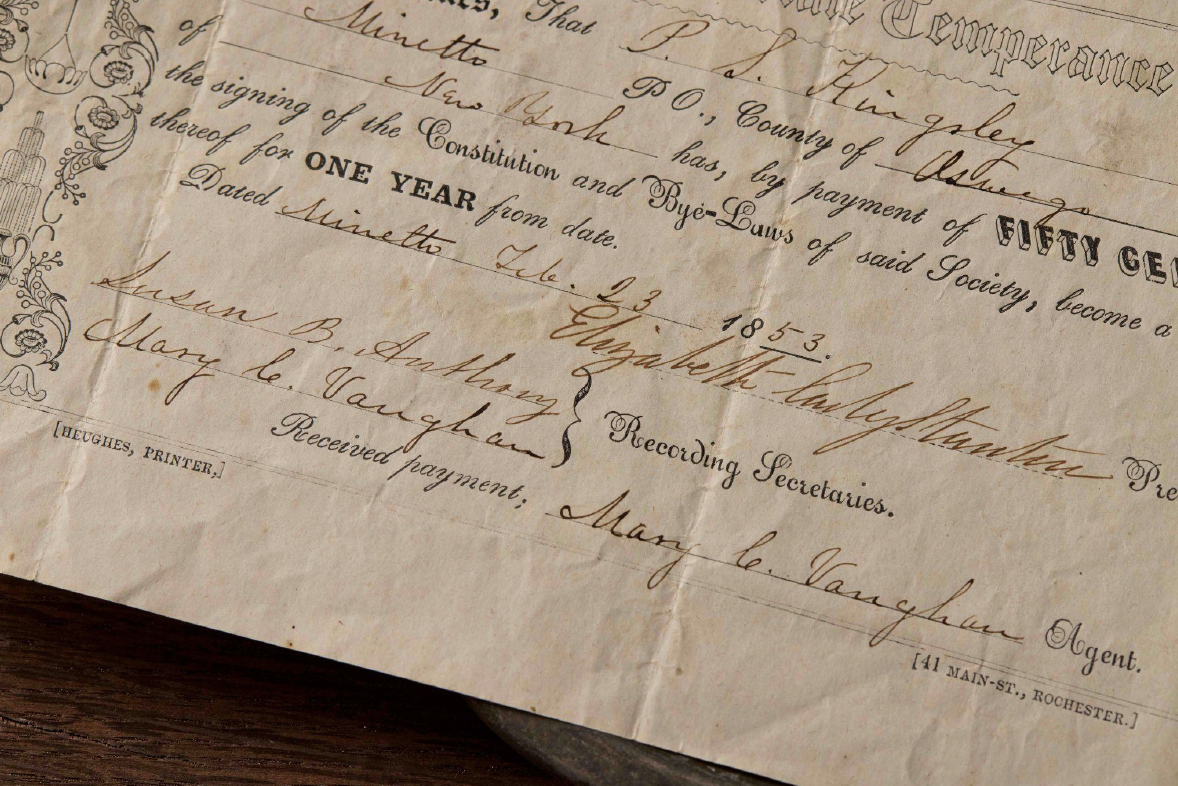 Temperance
That P. S. Kingsley
of Minetto P O., County of Oswego
New York has, by payment of FIFTY CE
the signing of the Constitution and Bye-Laws of said Society, become a
thereof for ONE YEAR from date.
Dated Minetto Feb. 23 1853.
Susan B. Anthony
Mary C. Vaughan } Recording Secretaries.
Elizabeth Cady Stanton Pre
Received payment; Mary C. Vaughan Agent.
[HEUGHES, PRINTER,] [41 MAIN-ST., ROCHESTER.]